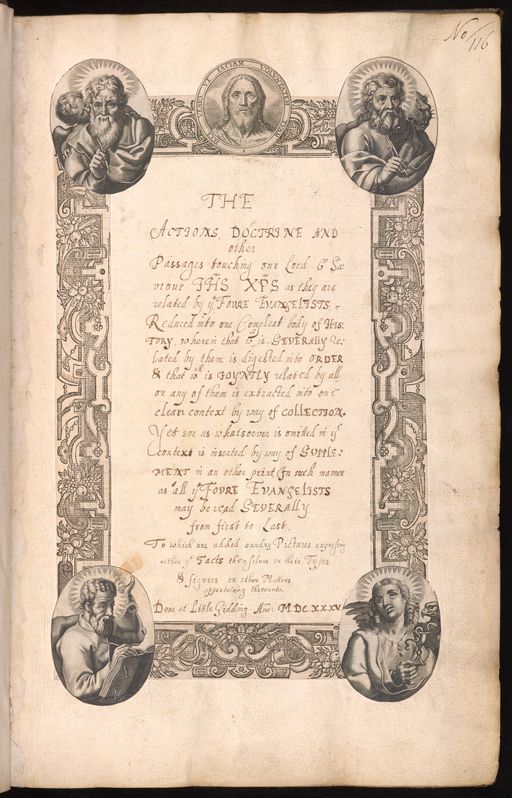 No
116
VT FACIAM VOLVNTATEM
THE
ACTIONS DOCTRINE AND
other
Passages touching our Lord & Sa:
viour IHS XPS as they are
related by yͤ FOVRE EVANGELISTS
Reduced into one Compleat body of HIS:
TORY, wherein that wᶜʰ is SEVERALLY Re:
lated by them is digested into ORDER
& that wᶜʰ is JOYNTLY related by all
or any of them is extracted into one
cleare context by way of COLLECTION.
Yet soe as whatsoever is omitted in yͤ
Context is inserted by way of SUPPLE:
MENT in an other print In such manner
as all yͤ FOVRE EVANGELISTS
may be read SEVERALLY
from first to Last.
To which are added sundry Pictures expressing
either yͤ Facts themselves or their Types
& figures or other Matters
appertaining thereunto.
Done at Little Gidding Anᵒ: M.DC.XXXV